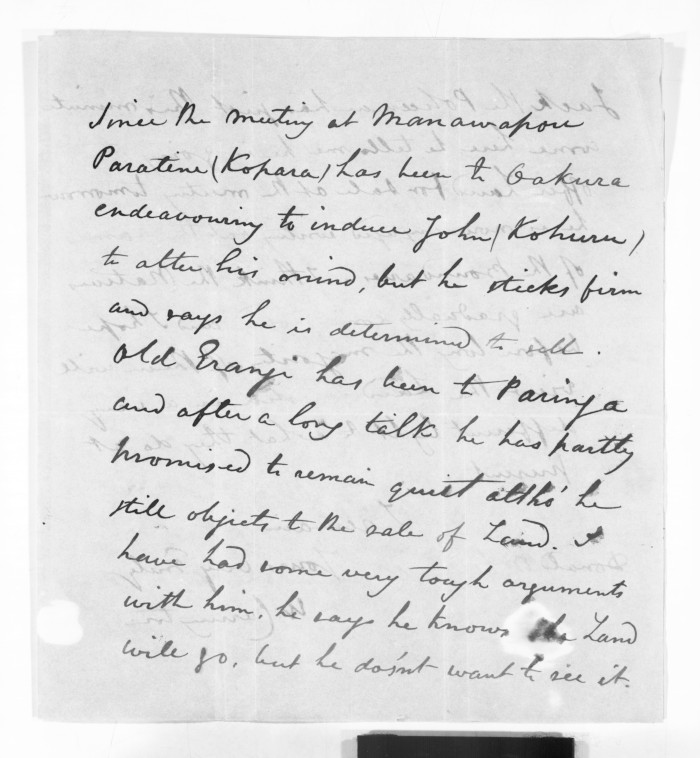 Since the meeting at Manawapou
Paratene (Kopara) has been to Oakura
endeavouring to induce John (Kohuru)
to alter his mind, but he sticks firm
and says he is determined to sell.
Old Erangi has been to Paringa
and after a long talk he has partly
promised to remain quiet altho' he
still objects to the sale of Land. I
have had some very tough arguments
with him. he says he knows the Land
will go, but he dos'nt want to see it.